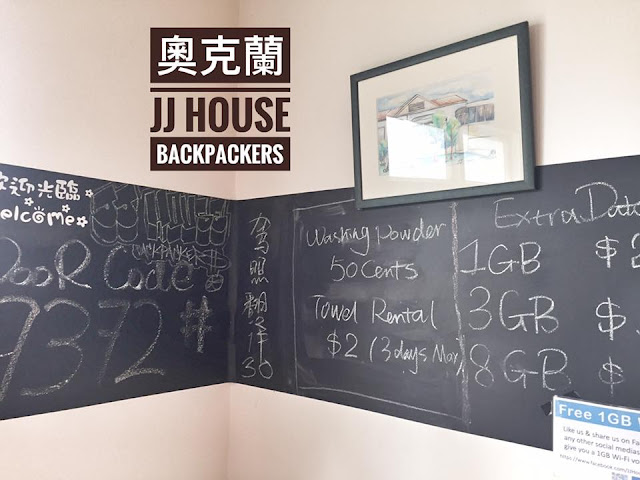 奧克蘭
JJ HOUSE
BACKPACKERS
歡迎光臨
welcome
Door Code:
9372#
駕照翻譯
30
Washing Powder
50 Cents
Towel Rental
$2 (3 days Max)
Extra Data
1GB $
3GB $
8GB $
Free 1GB
Like us & share us on
any other social medias
give you a 1GB Wi-Fi